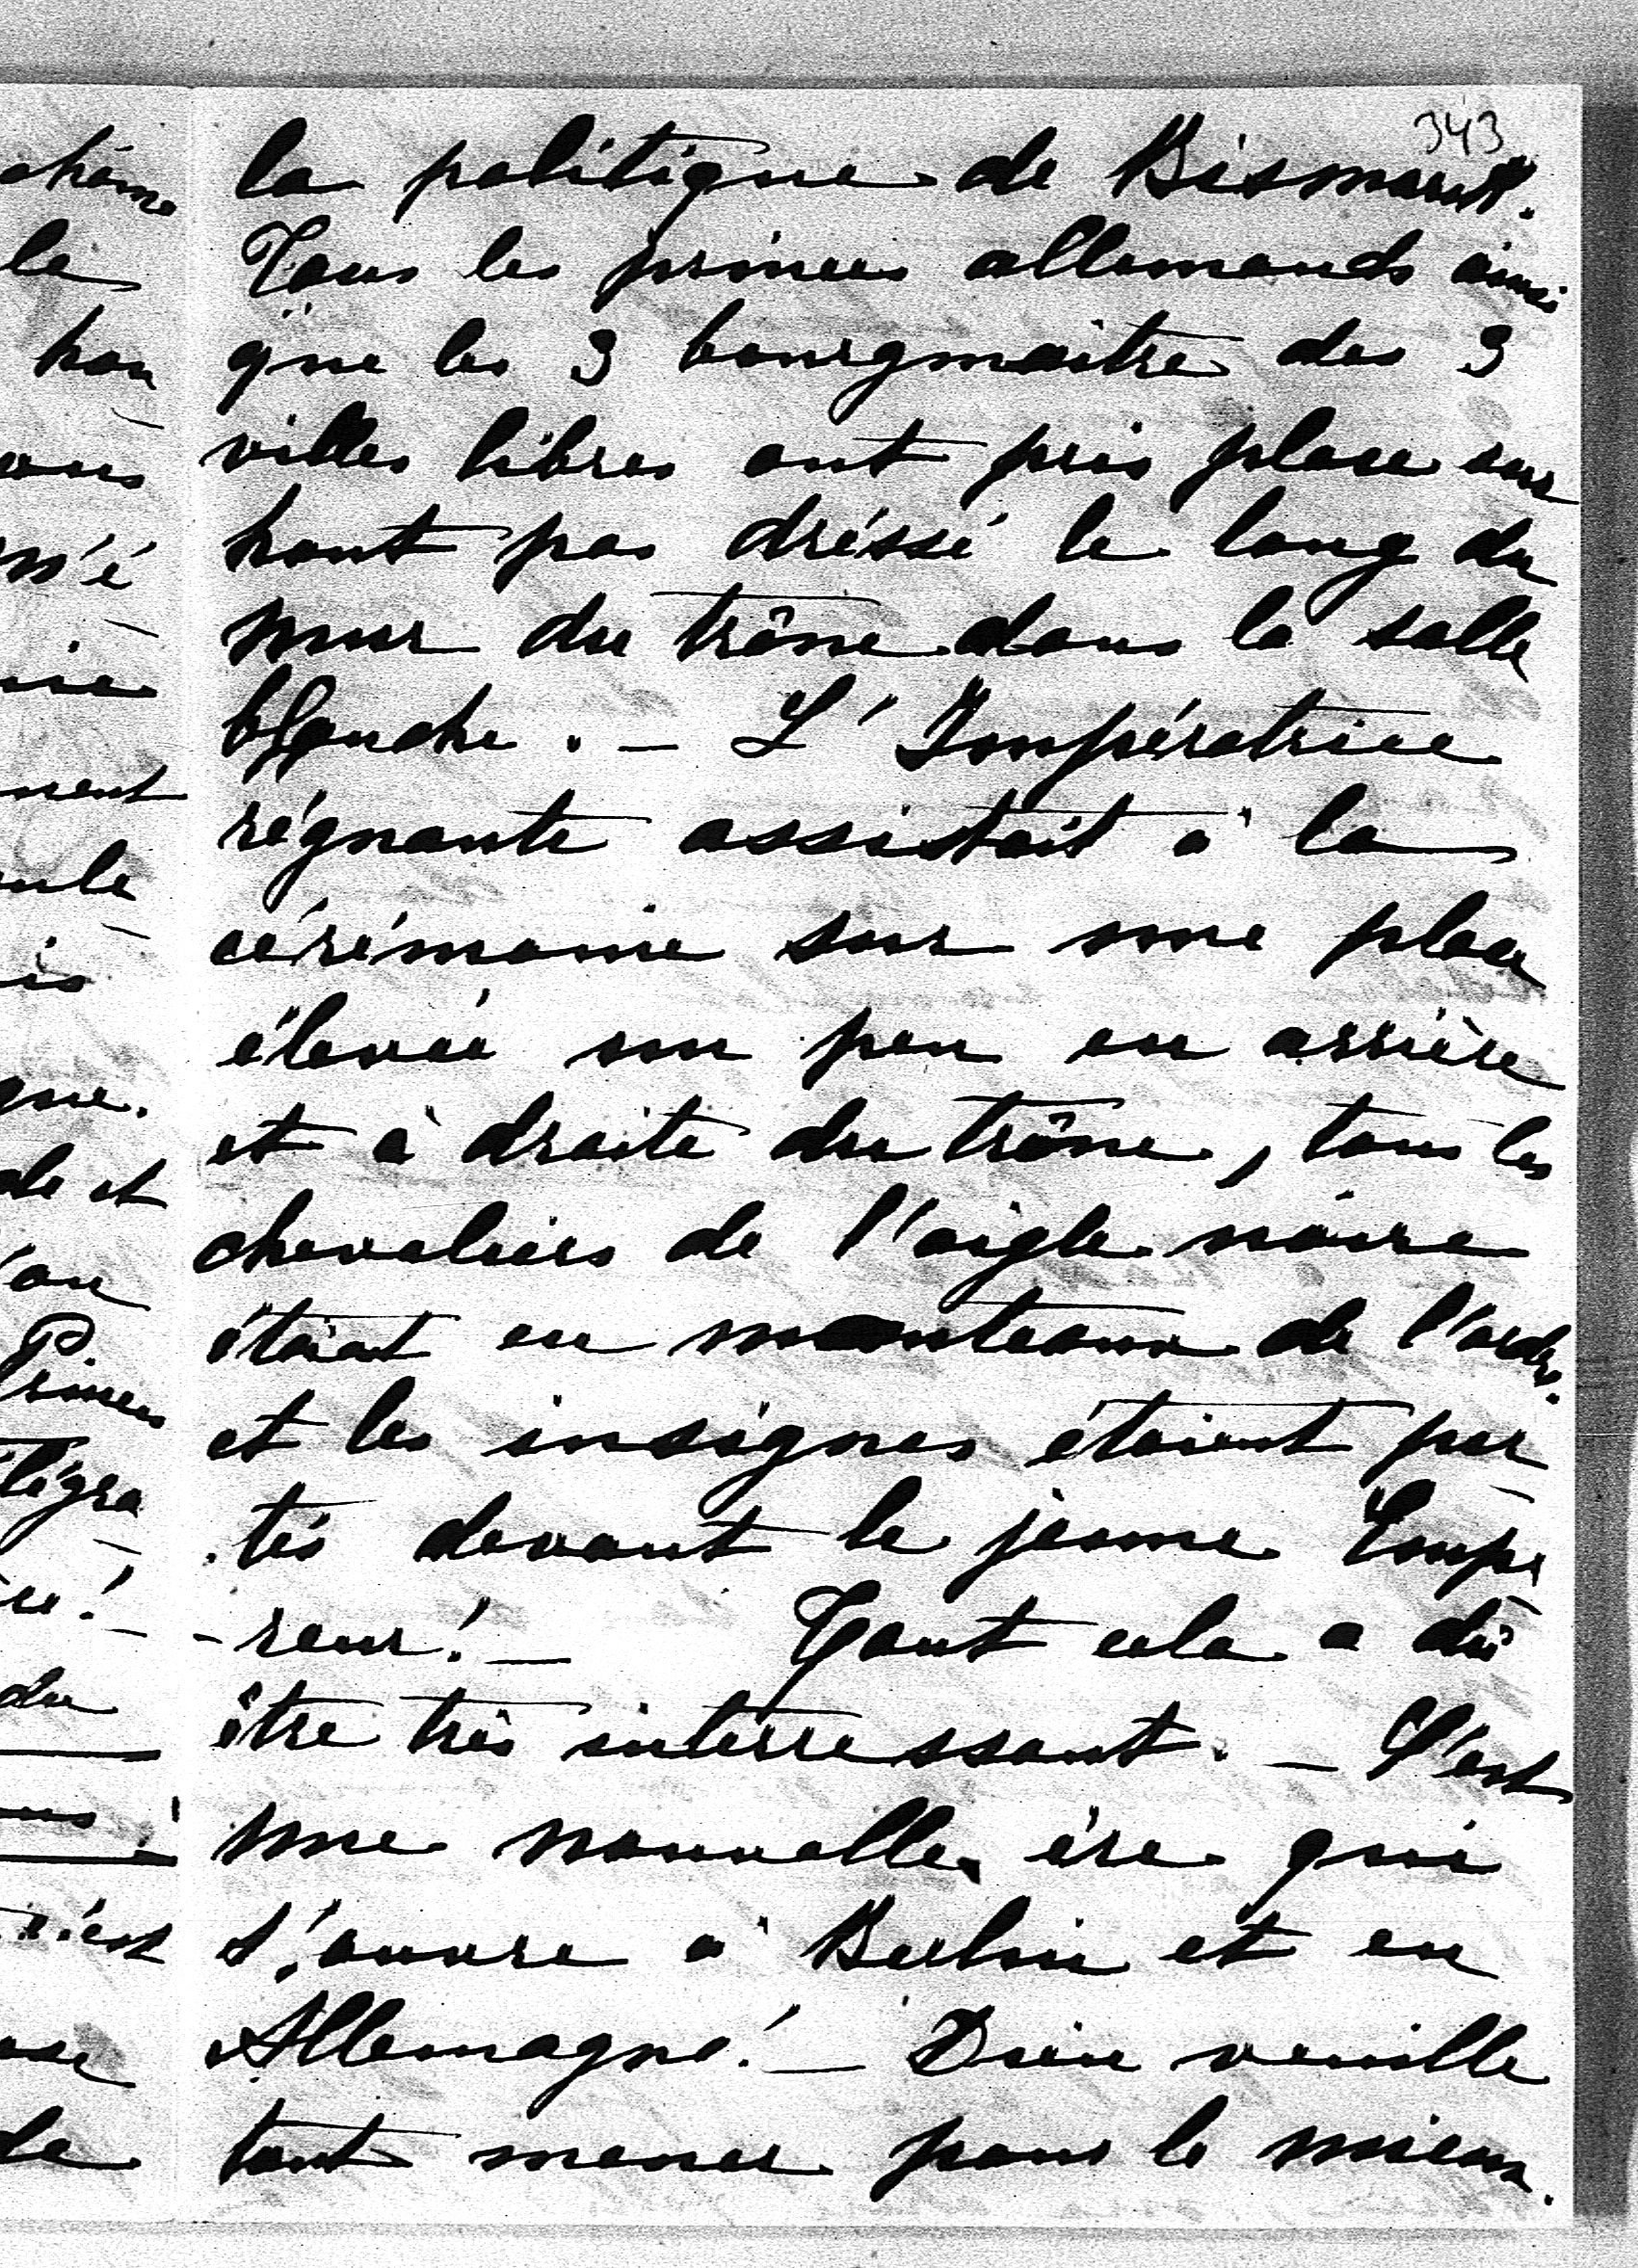 343
la politique de Bismarck.
Tous les princes allemands ainsi
que les 3 bourgmaitre des 3
villes libres ont pris place sur
haut pas dréssé le long du
mur du trône dans la salle
blanche. — L'Impératrice
régnante assistait à la
cérémonie sur une place
élevée un peu en arrière
et à droite du trône, tous les
chevaliers de l'aigle noire
étaient en manteaux de l'ordre.
et les insignes étaient por-
tés devant le jeune Empe
-reur! — Tout cela a dû
être très interressant. — C'est
une nouvelle ère qui
s'ouvre à Berlin et en
Allemagne! — Dieu veuille
tout mener pour le mieux.